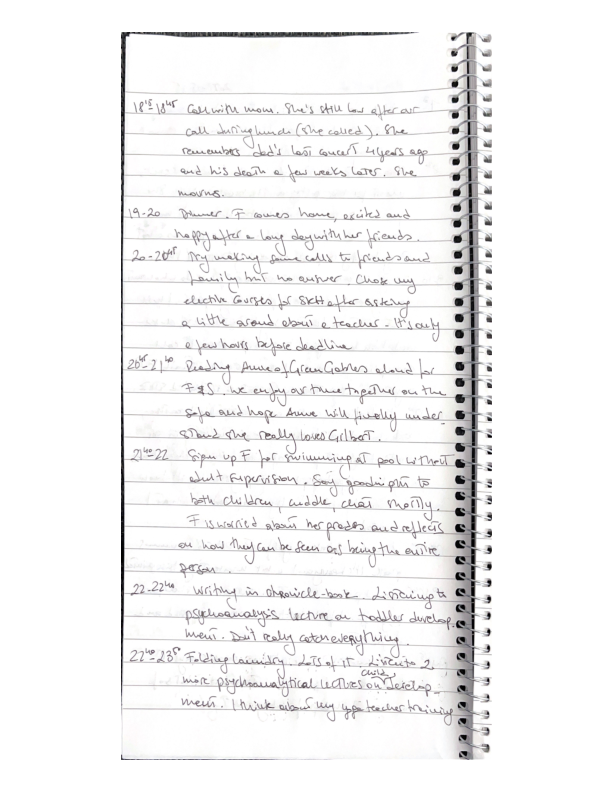 18¹⁵-18⁴⁵ Call with mom. She's still low after our
call during lunch (she called). She
remembers dad's last concert 4 years ago
and his death a few weeks later. She
mourns.
19-20 Dinner. F comes home, excited and
happy after a long day with her friends.
20-20⁴⁵ Try making some calls to friends and
family but no answer. Chose my
elective courses for after asking
a little around about a teacher. It's only
a few hours before deadline
20⁴⁵-21⁴⁰ Reading Anne of Green Gables aloud for
F&S. We enjoy our time together on the
sofa and hope Anne will finally under-
stand she really loves Gilbert.
21⁴⁰-22 Sign up F for swimming at pool without
adult supervision. Say goodnight to
both children, cuddle, chat shortly.
F is worried about her grades and reflects
on how they can be seen as being the entire
person.
22-22⁴⁰ Writing in chronicle-book. Listening to
psychoanalysis lecture on toddler develop-
ment. Don't really catch everything.
22⁴⁰-23⁵⁰ Folding laundry. Lots of it. Listen to 2
more psychoanalytical lectures on child develop-
ment. I think about my yoga teacher training